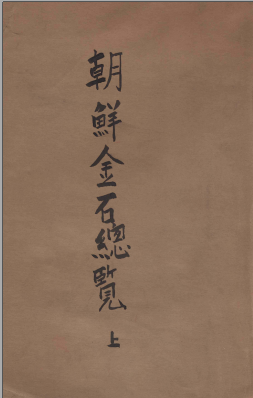 朝鮮金石總覽上